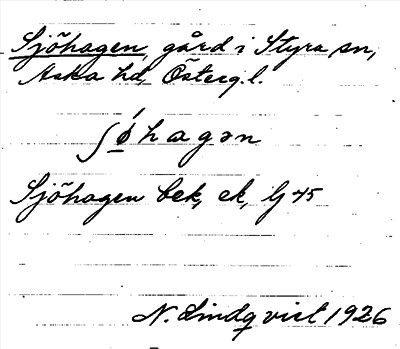 Sjöhagen, gård i Styra sn,
Aska hd, Österg.l.
ʃǿ̠hagən
Sjöhagen bek, ek, Lj 45
N. Lindqvist 1926